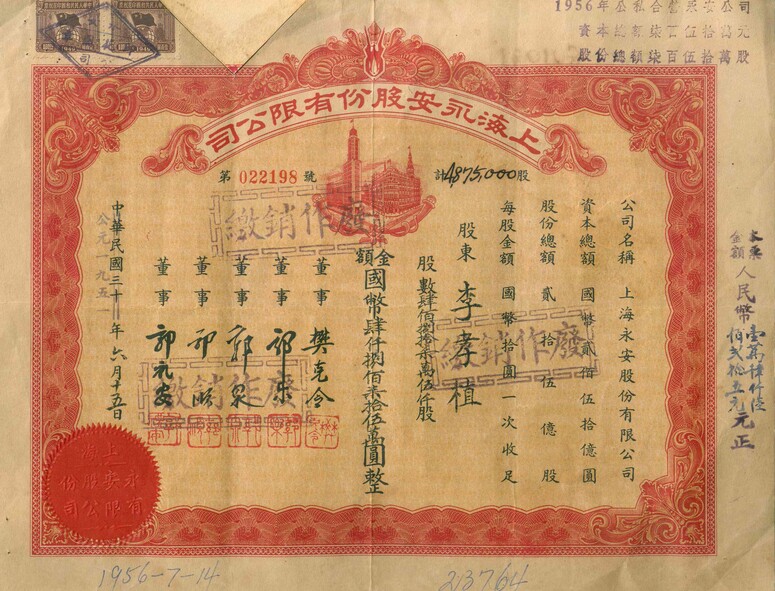 1956年公私合營永安公司
資本總額柒百伍拾萬元
股份總額柒百伍拾萬股
司公限有份股安永海上
第 022198 號
計4,875,000股
公司名稱 上海永安股份有限公司
資本總額 國幣貳佰伍拾億圓
股份總額 貳拾伍億股
每股金額 國幣拾圓一次收足
股東 李孝植
股數肆佰捌拾柒萬伍仟股
金額國幣肆仟捌佰柒拾伍萬圓整
董事
董事
董事
董事
董事
郭
郭
中華民國三十年六月十五日
公元一九五一
繳銷作廢
繳銷作廢
繳銷作廢
本票
金額人民幣
元正
上海
永安股份
有限公司
1956-7-14
23764